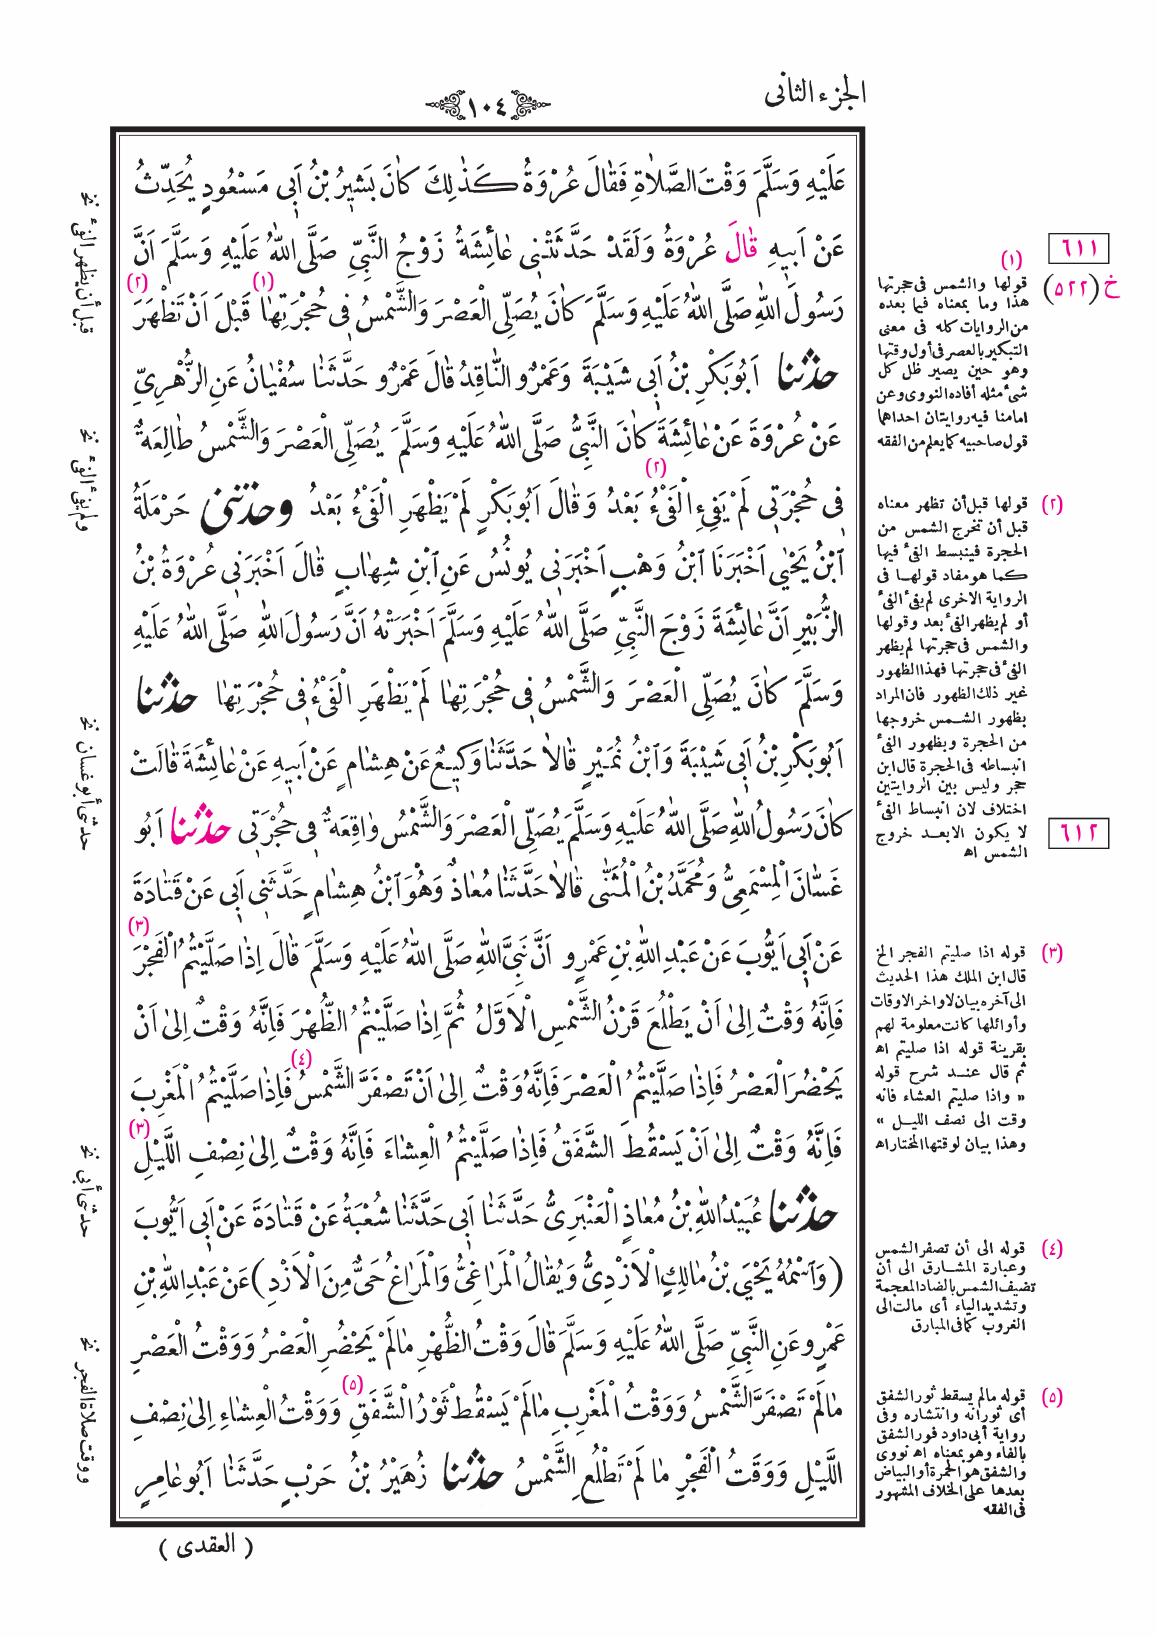 الجزء الثانى
١٠٤
عَلَيْهِ وَسَلَّمَ وَقْتَ الصَّلَاةِ فَقَالَ عُرْوَةُ كَذٰلِكَ كَانَ بَشِيرُ بْنُ اَبِى مَسْعُودٍ يُحَدِّثُ
عَنْ اَبِيهِ قَالَ عُرْوَةُ وَلَقَدْ حَدَّثَتْنِى عَائِشَةُ زَوْجُ النَّبِىِّ صَلَّى اللّٰهُ عَلَيْهِ وَسَلَّمَ اَنَّ
رَسُولَ اللّٰهِ صَلَّى اللّٰهُ عَلَيْهِ وَسَلَّمَ كَانَ يُصَلِّى الْعَصْرَ وَالشَّمْسُ فِى حُجْرَتِهَا (١) قَبْلَ اَنْ تَظْهَرَ (٢)
حدثنا اَبُو بَكْرِ بْنُ اَبِى شَيْبَةَ وَعَمْرٌو النَّاقِدُ قَالَ عَمْرٌو حَدَّثَنَا سُفْيَانُ عَنِ الزُّهْرِىِّ
عَنْ عُرْوَةَ عَنْ عَائِشَةَ كَانَ النَّبِىُّ صَلَّى اللّٰهُ عَلَيْهِ وَسَلَّمَ يُصَلِّى الْعَصْرَ وَالشَّمْسُ طَالِعَةٌ
فِى حُجْرَتِى لَمْ يَفِئِ الْفَىْءُ (٢) بَعْدُ وَقَالَ اَبُو بَكْرٍ لَمْ يَظْهَرِ الْفَىْءُ بَعْدُ وحدثنى حَرْمَلَةُ
ابْنُ يَحْيٰى اَخْبَرَنَا ابْنُ وَهْبٍ اَخْبَرَنِى يُونُسُ عَنِ ابْنِ شِهَابٍ قَالَ اَخْبَرَنِى عُرْوَةُ بْنُ
الزُّبَيْرِ اَنَّ عَائِشَةَ زَوْجَ النَّبِىِّ صَلَّى اللّٰهُ عَلَيْهِ وَسَلَّمَ اَخْبَرَتْهُ اَنَّ رَسُولَ اللّٰهِ صَلَّى اللّٰهُ عَلَيْهِ
وَسَلَّمَ كَانَ يُصَلِّى الْعَصْرَ وَالشَّمْسُ فِى حُجْرَتِهَا لَمْ يَظْهَرِ الْفَىْءُ فِى حُجْرَتِهَا حدثنا
اَبُو بَكْرِ بْنُ اَبِى شَيْبَةَ وَابْنُ نُمَيْرٍ قَالَا حَدَّثَنَا وَكِيعٌ عَنْ هِشَامٍ عَنْ اَبِيهِ عَنْ عَائِشَةَ قَالَتْ
كَانَ رَسُولُ اللّٰهِ صَلَّى اللّٰهُ عَلَيْهِ وَسَلَّمَ يُصَلِّى الْعَصْرَ وَالشَّمْسُ وَاقِعَةٌ فِى حُجْرَتِى حدثنا اَبُو
غَسَّانَ الْمِسْمَعِىُّ وَمُحَمَّدُ بْنُ الْمُثَنّٰى قَالَا حَدَّثَنَا مُعَاذٌ وَهُوَ ابْنُ هِشَامٍ حَدَّثَنِى اَبِى عَنْ قَتَادَةَ
عَنْ اَبِى اَيُّوبَ عَنْ عَبْدِ اللّٰهِ بْنِ عَمْرٍو اَنَّ نَبِىَّ اللّٰهِ صَلَّى اللّٰهُ عَلَيْهِ وَسَلَّمَ قَالَ اِذَا صَلَّيْتُمُ الْفَجْرَ (٣)
فَاِنَّهُ وَقْتٌ اِلٰى اَنْ يَطْلُعَ قَرْنُ الشَّمْسِ الْاَوَّلُ ثُمَّ اِذَا صَلَّيْتُمُ الظُّهْرَ فَاِنَّهُ وَقْتٌ اِلٰى اَنْ
يَحْضُرَ الْعَصْرُ فَاِذَا صَلَّيْتُمُ الْعَصْرَ فَاِنَّهُ وَقْتٌ اِلٰى اَنْ تَصْفَرَّ الشَّمْسُ (٤) فَاِذَا صَلَّيْتُمُ الْمَغْرِبَ
فَاِنَّهُ وَقْتٌ اِلٰى اَنْ يَسْقُطَ الشَّفَقُ فَاِذَا صَلَّيْتُمُ الْعِشَاءَ فَاِنَّهُ وَقْتٌ اِلٰى نِصْفِ اللَّيْلِ (٣)
حدثنا عُبَيْدُ اللّٰهِ بْنُ مُعَاذٍ الْعَنْبَرِىُّ حَدَّثَنَا اَبِى حَدَّثَنَا شُعْبَةُ عَنْ قَتَادَةَ عَنْ اَبِى اَيُّوبَ
(وَاسْمُهُ يَحْيَى بْنُ مَالِكٍ الْاَزْدِىُّ وَيُقَالُ الْمَرَاغِىُّ وَالْمَرَاغُ حَىٌّ مِنَ الْاَزْدِ) عَنْ عَبْدِ اللّٰهِ بْنِ
عَمْرٍو عَنِ النَّبِىِّ صَلَّى اللّٰهُ عَلَيْهِ وَسَلَّمَ قَالَ وَقْتُ الظُّهْرِ مَا لَمْ يَحْضُرِ الْعَصْرُ وَوَقْتُ الْعَصْرِ
مَا لَمْ تَصْفَرَّ الشَّمْسُ وَوَقْتُ الْمَغْرِبِ مَا لَمْ يَسْقُطْ ثَوْرُ الشَّفَقِ (٥) وَوَقْتُ الْعِشَاءِ اِلٰى نِصْفِ
اللَّيْلِ وَوَقْتُ الْفَجْرِ مَا لَمْ تَطْلُعِ الشَّمْسُ حدثنا زُهَيْرُ بْنُ حَرْبٍ حَدَّثَنَا اَبُو عَامِرٍ
( العقدى )
٦١١
خ (٥٢٢)
٦١٢
(١)
قولها والشمس فى حجرتها
هذا وما بمعناه فيما بعده
من الروايات كله فى معنى
التبكير بالعصر فى أول وقتها
وهو حين يصير ظل كل
شئ مثله أفاده النووى وعن
امامنا فيه روايتان احداهما
قول صاحبيه كما يعلم من الفقه
(٢) قولها قبل أن تظهر معناه
قبل أن تخرج الشمس من
الحجرة فينبسط الفئ فيها
كما هو مفاد قولها فى
الرواية الاخرى لم يفئ الفئ
أو لم يظهر الفئ بعد وقولها
والشمس فى حجرتها لم يظهر
الفئ فى حجرتها فهذا الظهور
غير ذلك الظهور فان المراد
بظهور الشمس خروجها
من الحجرة وبظهور الفئ
انبساطه فى الحجرة قال ابن
حجر وليس بين الروايتين
اختلاف لان انبساط الفئ
لا يكون الا بعد خروج
الشمس اه
(٣) قوله اذا صليتم الفجر الخ
قال ابن الملك هذا الحديث
الى آخره بيان لاواخر الاوقات
وأوائلها كانت معلومة لهم
بقرينة قوله اذا صليتم اه
ثم قال عند شرح قوله
« واذا صليتم العشاء فانه
وقت الى نصف الليل »
وهذا بيان لوقتها المختار اه
(٤) قوله الى أن تصفر الشمس
وعبارة المشارق الى أن
تضيف الشمس بالضاد المعجمة
وتشديد الياء أى مالت الى
الغروب كما فى المبارق
(٥) قوله مالم يسقط ثور الشفق
أى ثورانه وانتشاره وفى
رواية أبى داود فور الشفق
بالفاء وهو بمعناه اه نووى
والشفق هو الحمرة أو البياض
بعدها على الخلاف المشهور
فى الفقه
قبل أن يظهر الفئ نخ
ولم يفئ الفئ نخ
حدثنى أبو غسان نخ
حدثنى أبى نخ
ووقت صلاة الفجر نخ